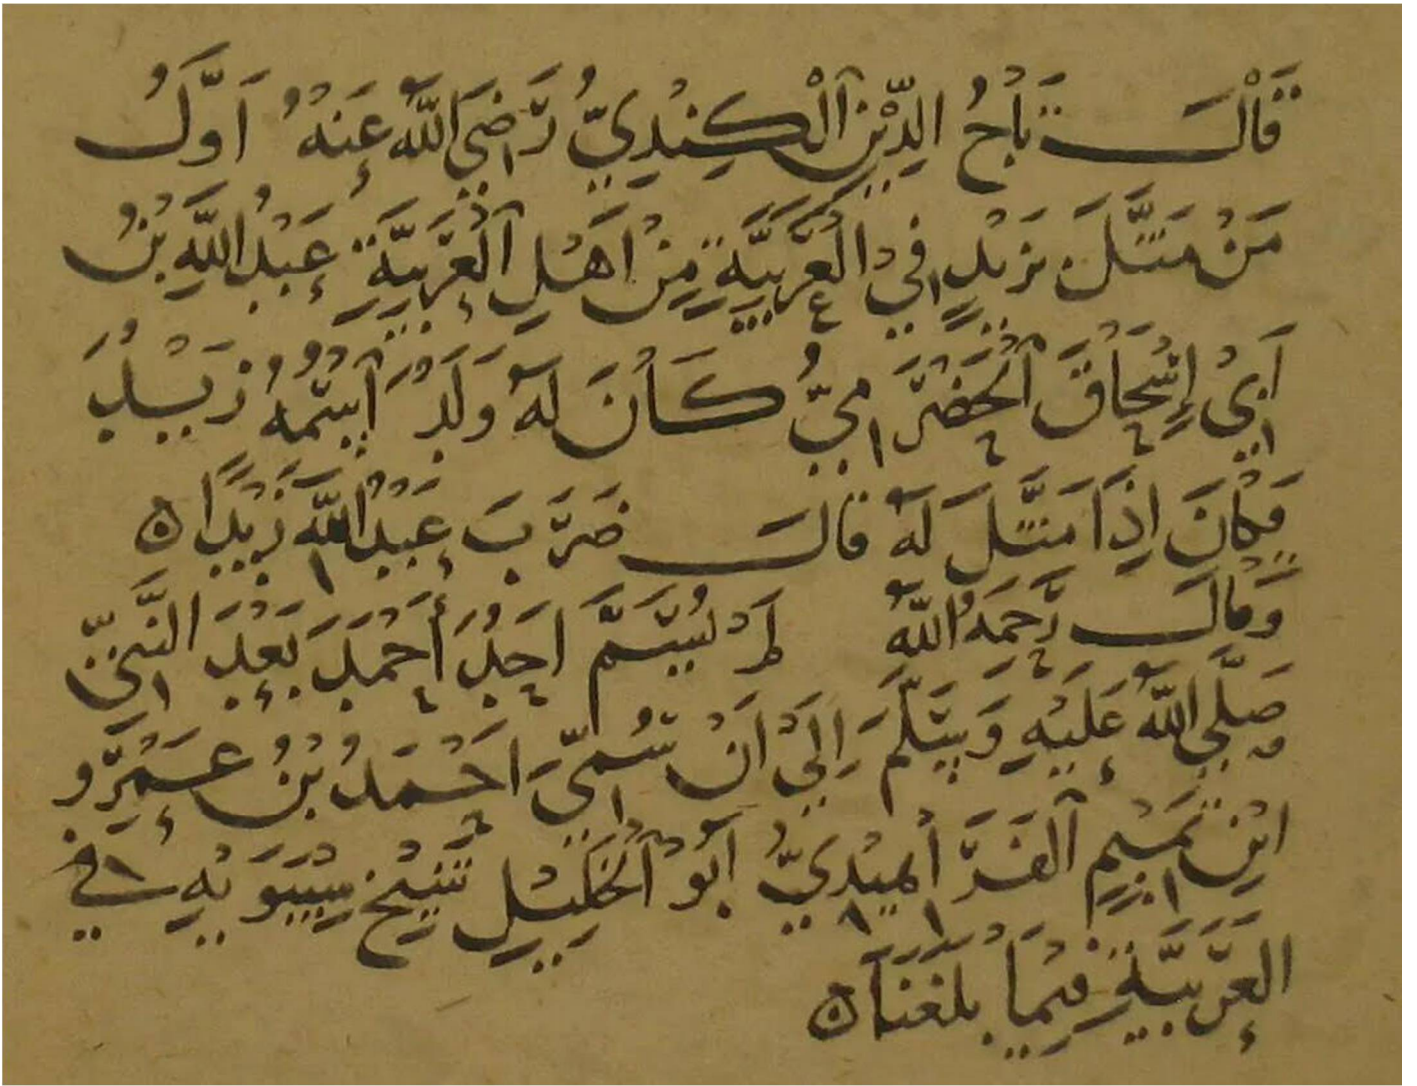 قَالَ تَاجُ الدِّيْنِ الْكِنْدِيُّ رَضِيَ اللّٰهُ عَنْهُ أَوَّلُ
مَنْ مَثَّلَ بِزَيْدٍ فِي الْعَرَبِيَّةِ مِنْ أَهْلِ الْعَرَبِيَّةِ عَبْدُ اللّٰهِ بْنُ
أَبِيْ إِسْحَاقَ الْحَضْرَمِيُّ كَانَ لَهُ وَلَدٌ اسْمُهُ زَيْدٌ
فَكَانَ إِذَا مَثَّلَ لَهُ قَالَ ضَرَبَ عَبْدُ اللّٰهِ زَيْدًا ه
وَقَالَ رَحِمَهُ اللّٰهُ لَمْ يُسَمَّ أَحَدٌ أَحْمَدَ بَعْدَ النَّبِيِّ
صَلَّى اللّٰهُ عَلَيْهِ وَسَلَّمَ إِلَى أَنْ سُمِّيَ أَحْمَدُ بْنُ عَمْرِو
ابْنِ تَمِيْمٍ الْفَرَاهِيْدِيُّ أَبُو الْخَلِيْلِ شَيْخِ سِيْبَوَيْهِ فِي
الْعَرَبِيَّةِ فِيْمَا بَلَغَنَا ه